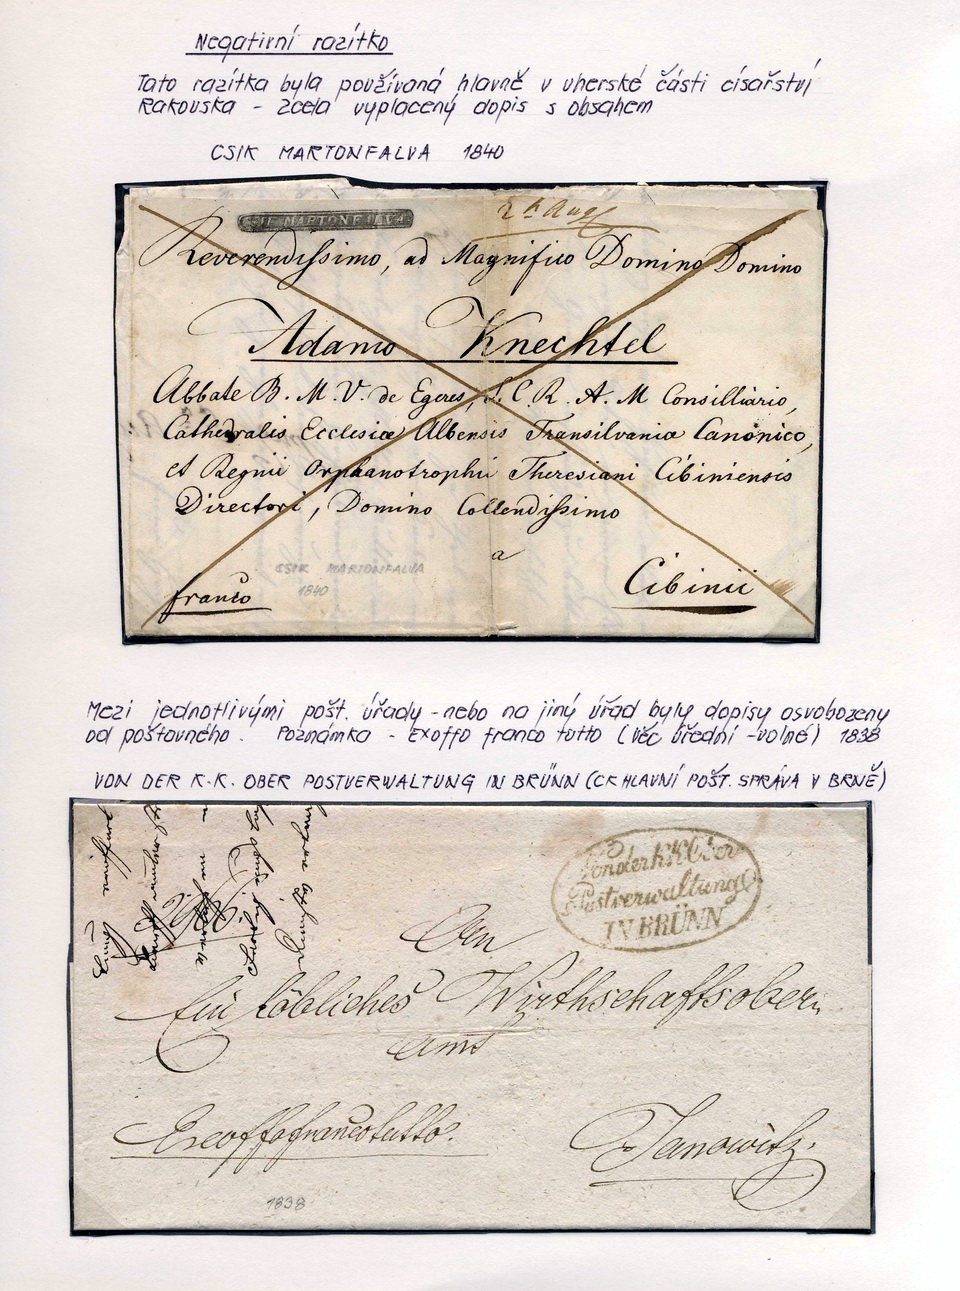 Negativní razítko
Tato razítka byla používaná hlavně v uherské části císařství
Rakouska - Zcela vyplacený dopis s obsahem
CSIK MARTONFALVA 1840
CSIK MARTONFALVA
2t Aug
Reverendissimo, ad Magnifico Domino Domino
Adamo Knechtel
Abbate B. M. V. de Egeres, S. C. R. A. M Consilliario,
Cathedralis Ecclesiæ Albensis Transilvaniæ Canonico,
et Regnii Orphanotrophii Theresiani Cibiniensis
Directori, Domino Collendissimo
a
CSIK MARTONFALVA
1840
franco
Cibinii
Mezi jednotlivými pošt. úřady - nebo na jiný úřad byly dopisy osvobozeny
od poštovného. Poznámka - Exoffo franco tutto (věc úřední - volné) 1838
VON DER K.K. OBER POSTVERWALTUNG IN BRÜNN (CK HLAVNÍ POŠT. SPRÁVA V BRNĚ)
Von der k: k: Ober
Postverwaltung
IN BRÜNN
Ein löbliches Wirthschaftsober=
amt
Exoffofrancotutto.
Janowitz.
1838